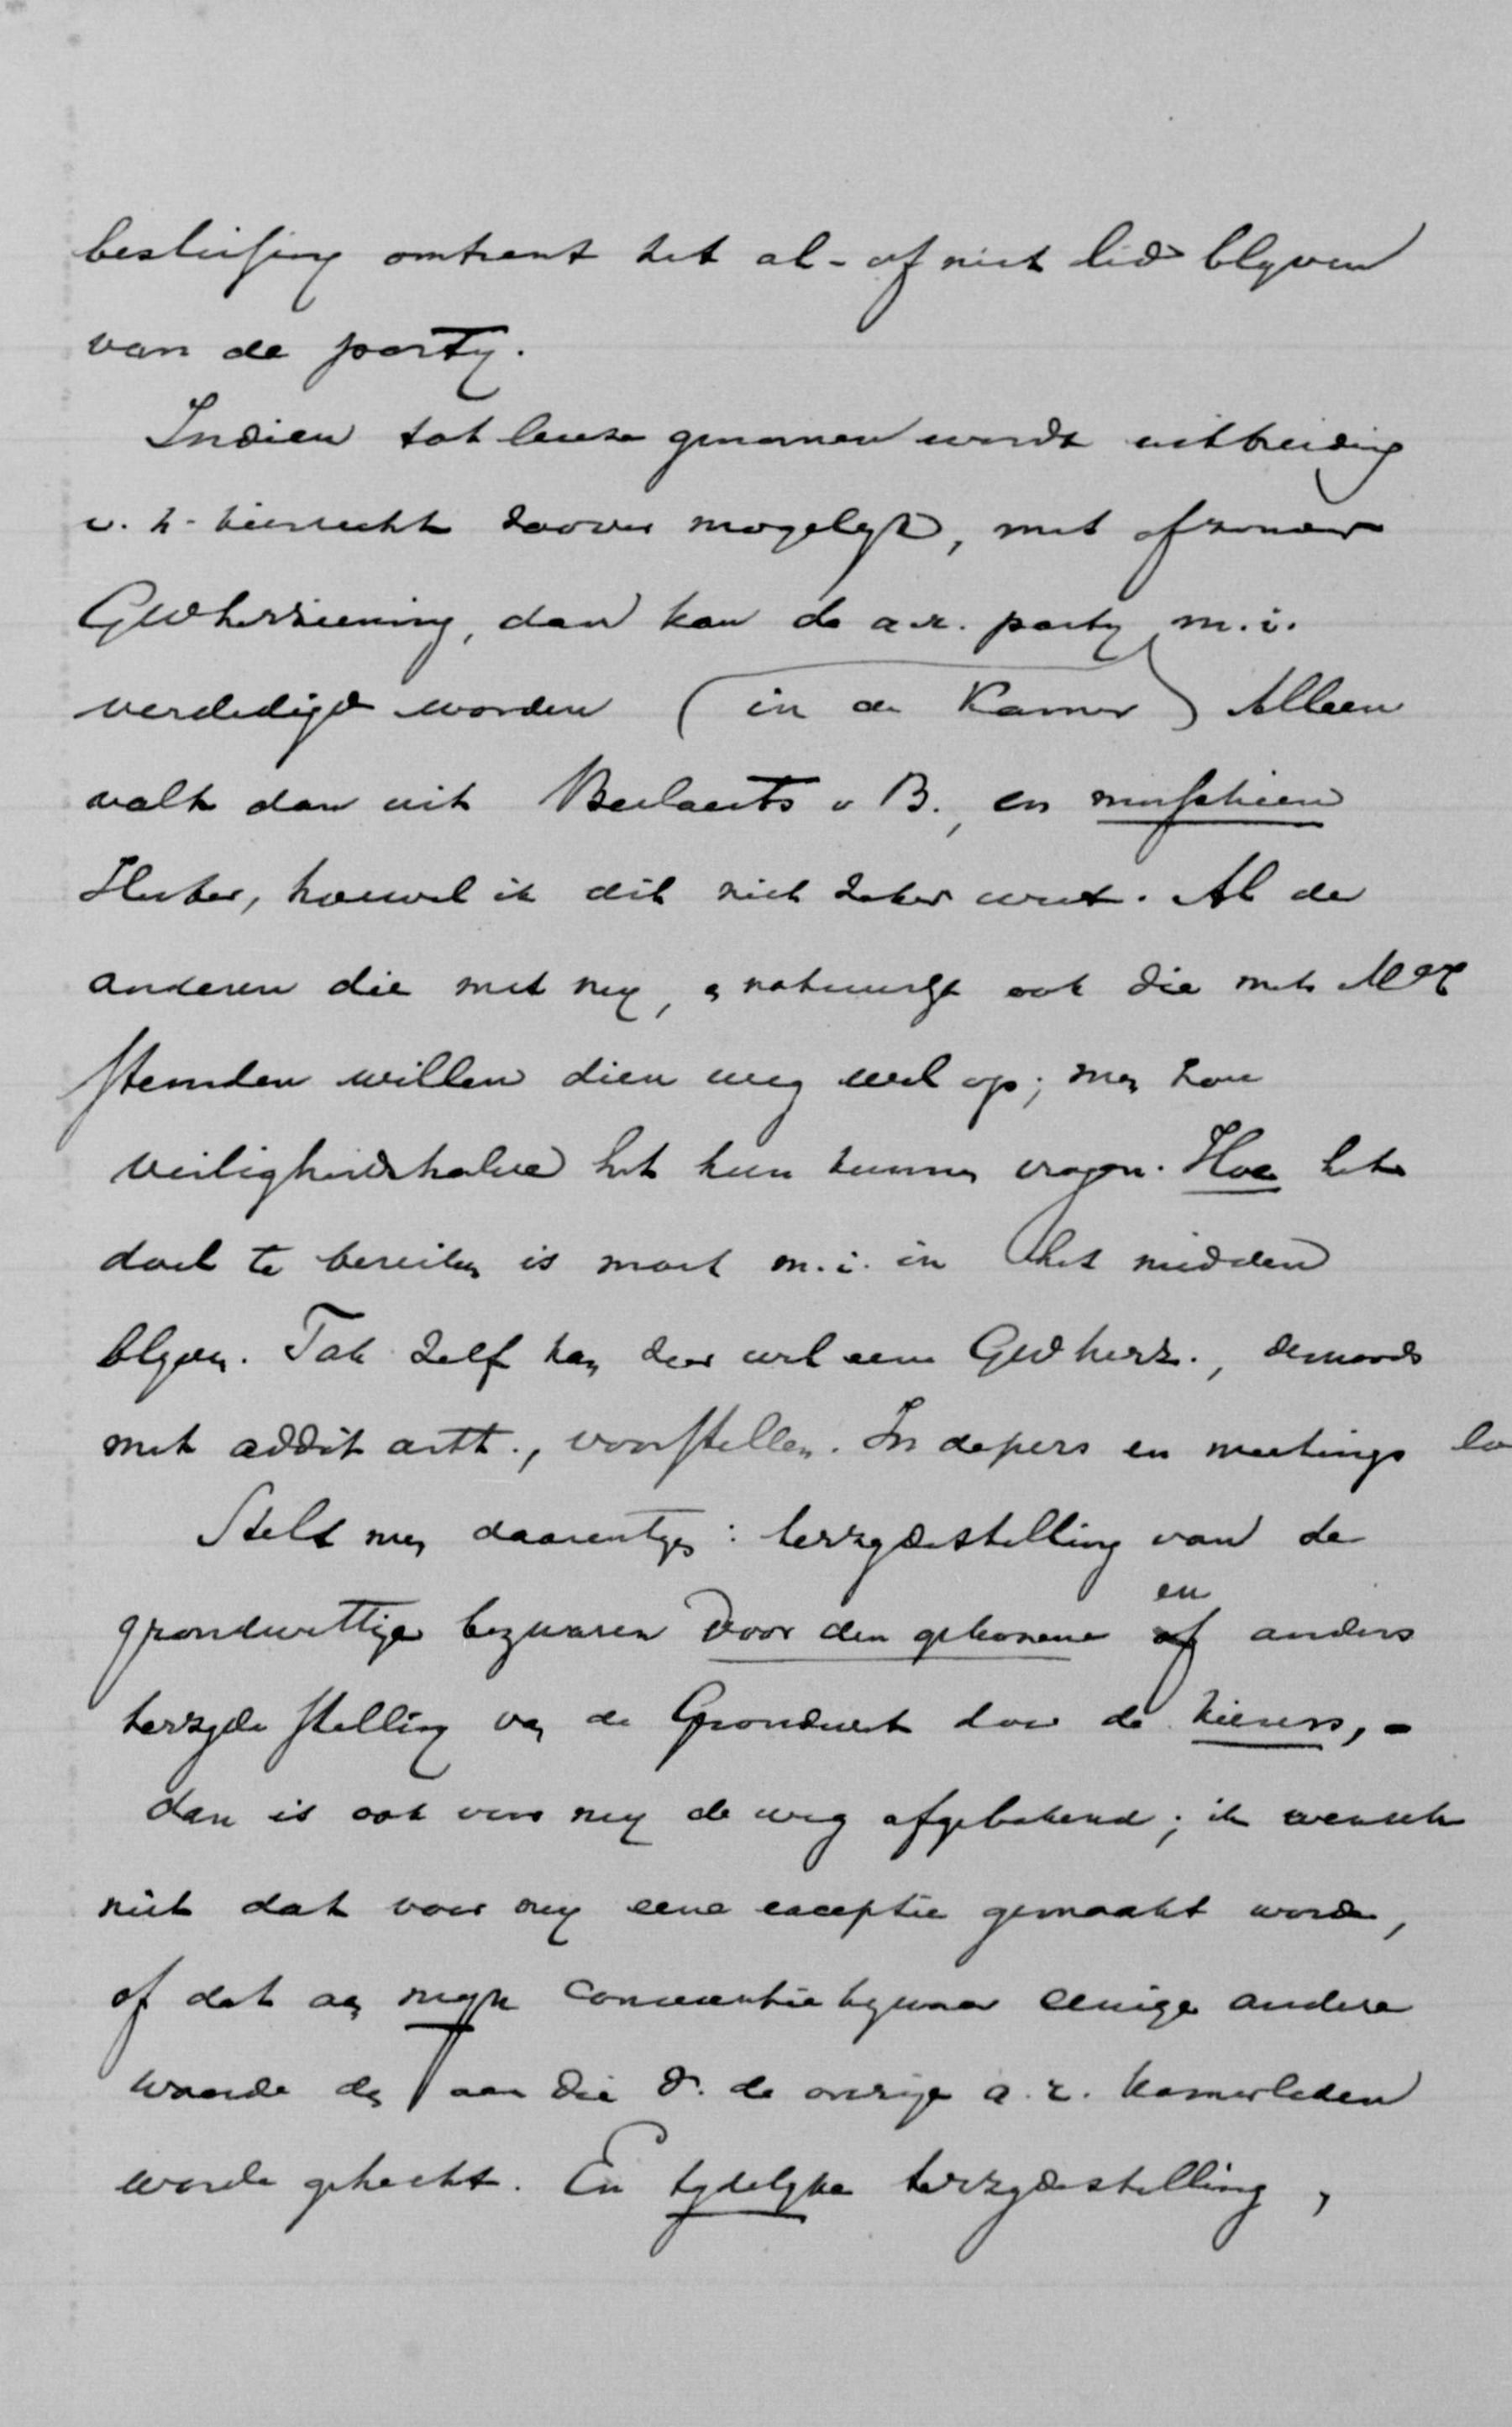 beslissing omtrent het al- of niet lid blyven
van de party.
Indien tot leuze genomen wordt uitbreiding
v. h. kiesrecht zoover mogelyk, met of zonder
GWherziening, dan kan de a.r. party m.i.
verdedigd worden (in de Kamer) Alleen
valt dan uit Beelaerts v B., en misschien
Huber, hoewel ik dit niet zeker weet. Al de
anderen die met my, & natuurlyk ook die met
stemden willen dien weg wel op; men zou
veiligheidshalve het hun kunnen vragen. Hoe het
doel te bereiken is moet m.i. in het midden
blyven. Tak zelf kan dan wel eene GWherz., desnoods
met addit artt., voorstellen. In de pers en meetings
Stelt men daarentegen: terzydestelling van de
grondwettige bezwaren door den gekozene en of anders
terzyde stelling van de Grondwet door de kiezers, -
dan is ook voor my de weg afgebakend; ik wensch
niet dat voor my eene exceptie gemaakt worde,
of dat aan myn conscientiebezwaar eenige andere
waarde dan aan die v. de overige a.r. kamerleden
worde gehecht. En tydelyke terzydestelling,